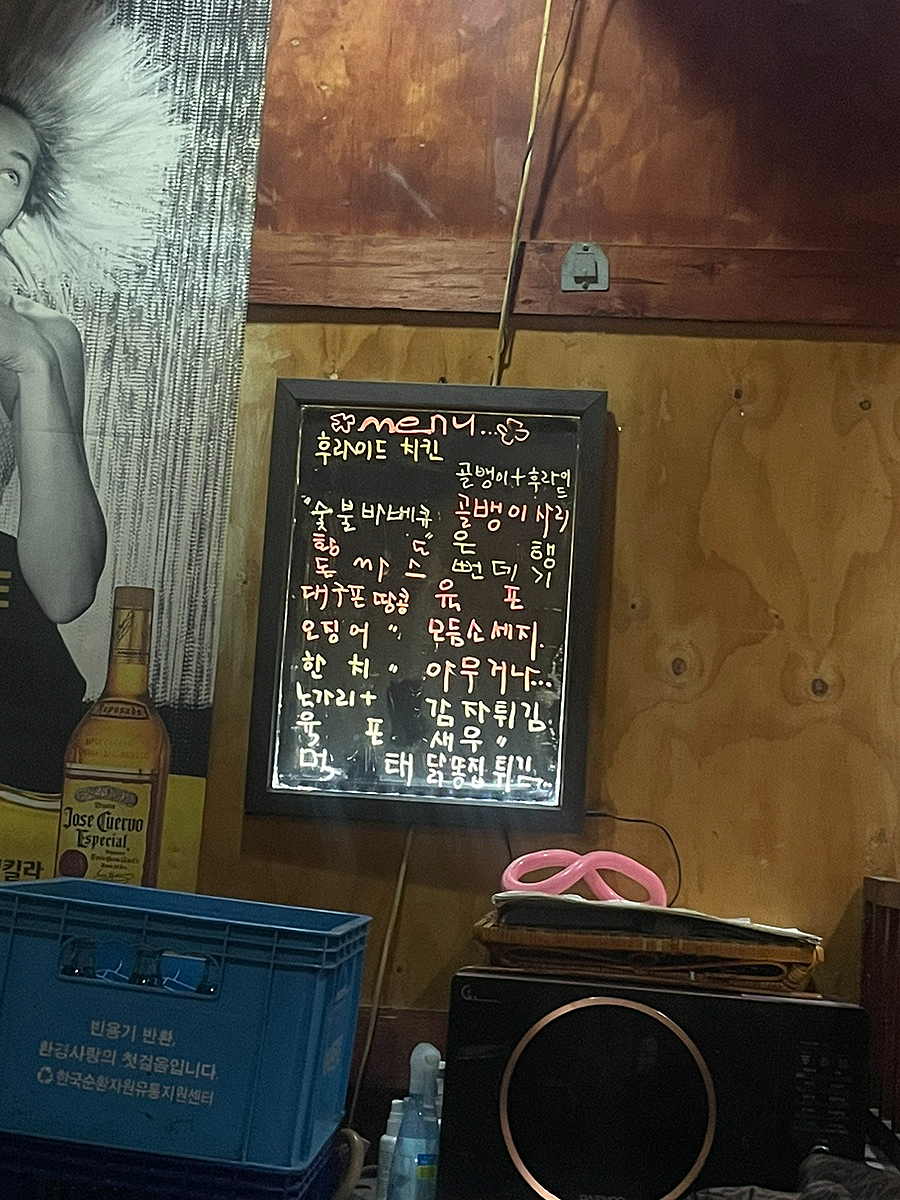 menu...
후라이드 치킨
골뱅이+후라이드
"숯불바베큐 골뱅이사리
황도" 은행
돈까스 뻔데기
대구포땅콩 육포
오징어 " 모듬소세지.
한치 " 아무거나...
노가리+ 감자튀김
육포 새우 "
먹태 닭똥집튀김...
Reposado
Jose Cuervo
Especial
킬라
빈용기 반환,
환경사랑의 첫걸음입니다.
한국순환자원유통지원센터
DAEWOO